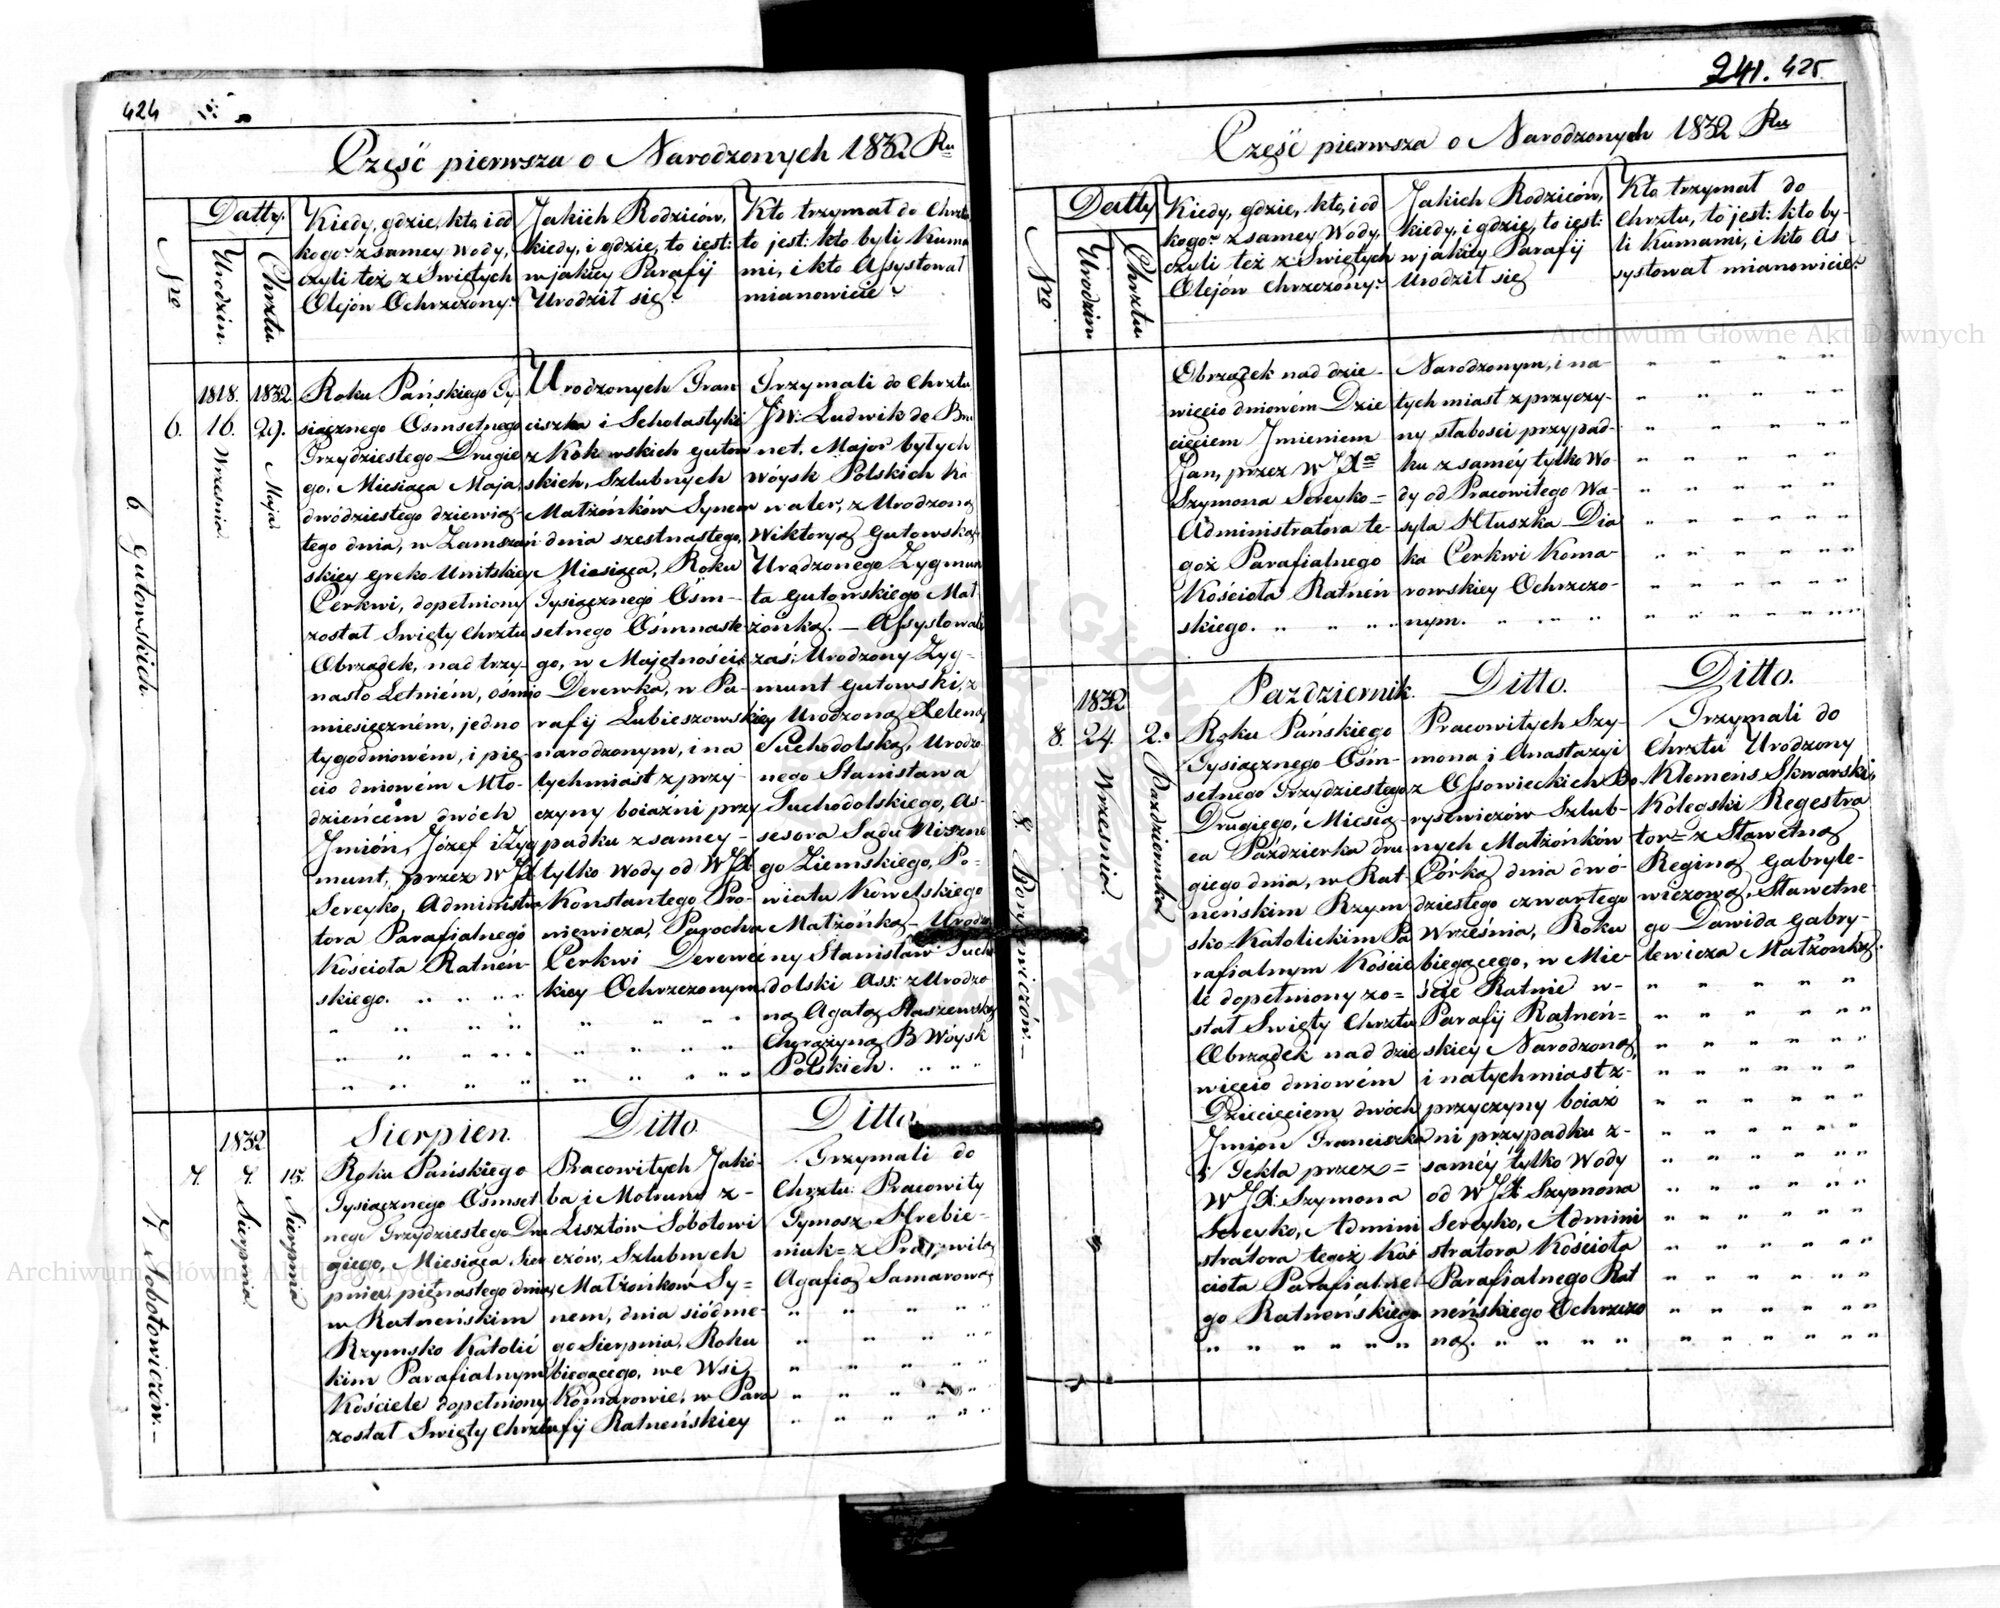 424
Część pierwsza o Narodzonych 1832 Ru
Nro
Datty.
Urodzin.
Chrztu.
Kiedy, gdzie, kto, i od
kogo? z samey Wody,
czyli też z Swiętych
Olejów Ochrzczony?
Jakich Rodziców,
kiedy, i gdzie, to iest:
w jakiey Parafij
Urodził się?
Kto trzymał do Chrztu,
to jest: kto byli Kuma
mi, i kto Assystował
mianowicie?
6 Gutowskich.
6.
1818.
16.
Wrzesnia
1832
29.
Maja
Roku Pańskiego Ty
siącznego Osmsetnego
Trzydziestego Drugie
go, Miesiąca Maja,
dwódziestego dziewią-
tego dnia, w Zamszań
skiey Greko Unitskiey
Cerkwi, dopełniony
został Swięty Chrztu
Obrządek, nad trzy-
nasto Letniém, ośmio
miesięczném, jedno
tygodniowém, i pię
cio dniowém Mło-
dzieńcem dwóch
Jmión, Józef i Zyg
munt, przez W JX
Sereyko, Administra
tora Parafialnego
Kościoła Ratneń-
skiego.
Urodzonych Fran
ciszka i Scholastyki
z Kok owskich Gutow
skich, Szlubnych
Małżónków Synem
dnia szestnastego,
Miesiąca, Roku
Tysiącznego Ósm-
setnego Ośmnaste-
go, w Majętności
Derewka, w Pa-
rafij Lubieszowskiey
narodzonym, i na
tychmiast z przy-
czyny boiaźni przy
padku z samey
tylko Wody od W JX
Konstantego Pro-
niewicza, Parocha
Cerkwi Derewec
kiey Ochrzczonym.
Trzymali do Chrztu
JW: Ludwik de Bru
net, Major byłych
Wóysk Polskich Ka
waler, z Urodzoną
Wiktoryą Gutowską,
Urodzonego Zygmun
ta Gutowskiego Mał-
żonką. — Assystowali
zaś: Urodzony Zyg-
munt Gutowski, z
Urodzoną Heleną
Suchodolską, Urodzo
nego Stanisława
Suchodolskiego, As-
sesora Sądu Niższe
go Ziemskiego, Po-
wiatu Kowelskiego
Małżónką – Urodzo
ny Stanisław Sucho
dolski Ass: z Urodzo
ną Agatą Staszewską
Chorążyną B Wóysk
Polskich.
7. Sobotowiczów.
7.
1832
7.
Sierpnia
15.
Sierpnia
Sierpien.
Roku Pańskiego
Tysiącznego Osmset
nego Trzydziestego Dru
giego, Miesiąca Sier
pnia, piętnastego dnia,
w Ratneńskim
Rzymsko Katolic
kim Parafialnym
Kościele dopełniony
został Swięty Chrztu
Ditto
Pracowitych Jakó-
ba i Motruny z
Lisztów Sobotowi
czów, Szlubnych
Małżonków Sy=
nem, dnia siódme-
go Sierpnia, Roku
biegącego, we Wsi
Komarowie, w Para
fij Ratneńskiey
Ditto.
Trzymali do
Chrztu: Pracowity
Tymosz Hrebie-
niuk= z Pracowitą
Agafią Samarową
241. 425.
Część pierwsza o Narodzonych 1832 Ru
Nro
Datty
Urodzin.
Chrztu.
Kiedy, gdzie, kto, i od
kogo? z samey Wody,
czyli też z Swiętych
Olejow Chrzczony?
Jakich Rodziców,
kiedy, i gdzie, to iest:
w jakiey Parafij
Urodził się
Kto trzymał do
Chrztu, to jest: kto by-
li Kumami, i kto As
systował mianowicie?
Obrządek nad dzie-
więcio dniowém Dzie
cięciem Jmieniem
Jan, przez W JXa
Szymona Sereyko=
Administratora te-
goż Parafialnego
Kościoła Ratneń
skiego.
Narodzonym, i na-
tychmiast z przyczy-
ny słabości przypad-
ku z saméy tylko Wo
dy od Pracowitego Wa-
syla Hłuszka Dia
ka Cerkwi Koma-
rowskiey Ochrzczo-
nym.
8.
1832
24.
Wrzesnia
2.
Pazdziernika
Pazdziernik.
Roku Pańskiego
Tysiącznego Ósm-
setnego Trzydziestego
Drugiego, Miesią-
ca Pazdzierka dru
giego dnia, w Rat
neńskim Rzym
sko-Katolickim Pa
rafialnym Koście
le dopełniony zo=
stał Swięty Chrztu
Obrządek nad dzie
więcio dniowém
Dziecięciem dwóch
Jmion Franciszka
i Tekla przez=
W JX: Szymona
Sereyko, Admini
stratora tegoż Koś
cioła Parafialne-
go Ratneńskiego
Ditto.
Pracowitych Szy-
mona i Anastazyi
z Ossowieckich Bo-
rysewiczów Szlub-
nych Małżónków
Córką dnia dwó-
dziestego czwartego
Września, Roku
biegącego, w Mie-
ście Ratnie w-
Parafij Ratneń=
skiey Narodzoną,
i natychmiast z-
przyczyny boiaź
ni przypadku z-
saméy tylko Wody
od W JX Szymona
Sereyko, Admini
stratora Kościoła
Parafialnego Rat
neńskiego Ochrzczo
ną.
Ditto.
Trzymali do
Chrztu Urodzony
Klemens Skwarski,
Kolegski Regestra
tor= z Sławetną
Reginą Gabryle-
wiczową, Sławetne-
go Dawida Gabry-
lewicza Małżonką.
Archiwum Główne Akt Dawnych
Archiwum Główne Akt Dawnych